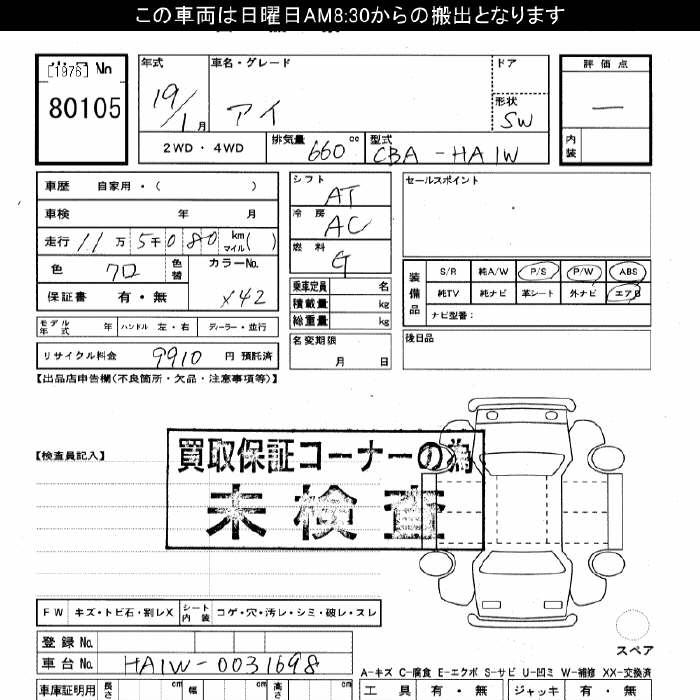 この車両は日曜日AM8:30からの搬出となります
[1976] No
80105
年式 19/1月
車名・グレード アイ
ドア
形状 SW
評価点 —
内装
2WD・4WD
排気量 660 cc
型式 CBA-HA1W
車歴 自家用・( )
車検 年 月
走行 11万5千080 km マイル( )
色 クロ 色替
カラーNo. X42
保証書 有・無
モデル年式 年 ハンドル 左・右 ディーラー・並行
リサイクル料金 9910 円 預託済
シフト AT
冷房 AC
燃料 G
乗車定員 名
積載量 kg
総重量 kg
名変期限
月 日
セールスポイント
装備品
S/R 純A/W P/S P/W ABS
純TV 純ナビ 革シート 外ナビ エアB
ナビ型番:
後日品
【出品店申告欄(不良箇所・欠品・注意事項等)】
【検査員記入】
買取保証コーナーの為
未検査
FW キズ・トビ石・割レX シート内装 コゲ・穴・汚レ・シミ・破レ・スレ
登録No.
車台No. HA1W-0031698
車庫証明用 長さ cm 幅 cm 高さ cm
スペア
A-キズ C-腐食 E-エクボ S-サビ U-凹ミ W-補修 XX-交換済
工具 有・無 ジャッキ 有・無